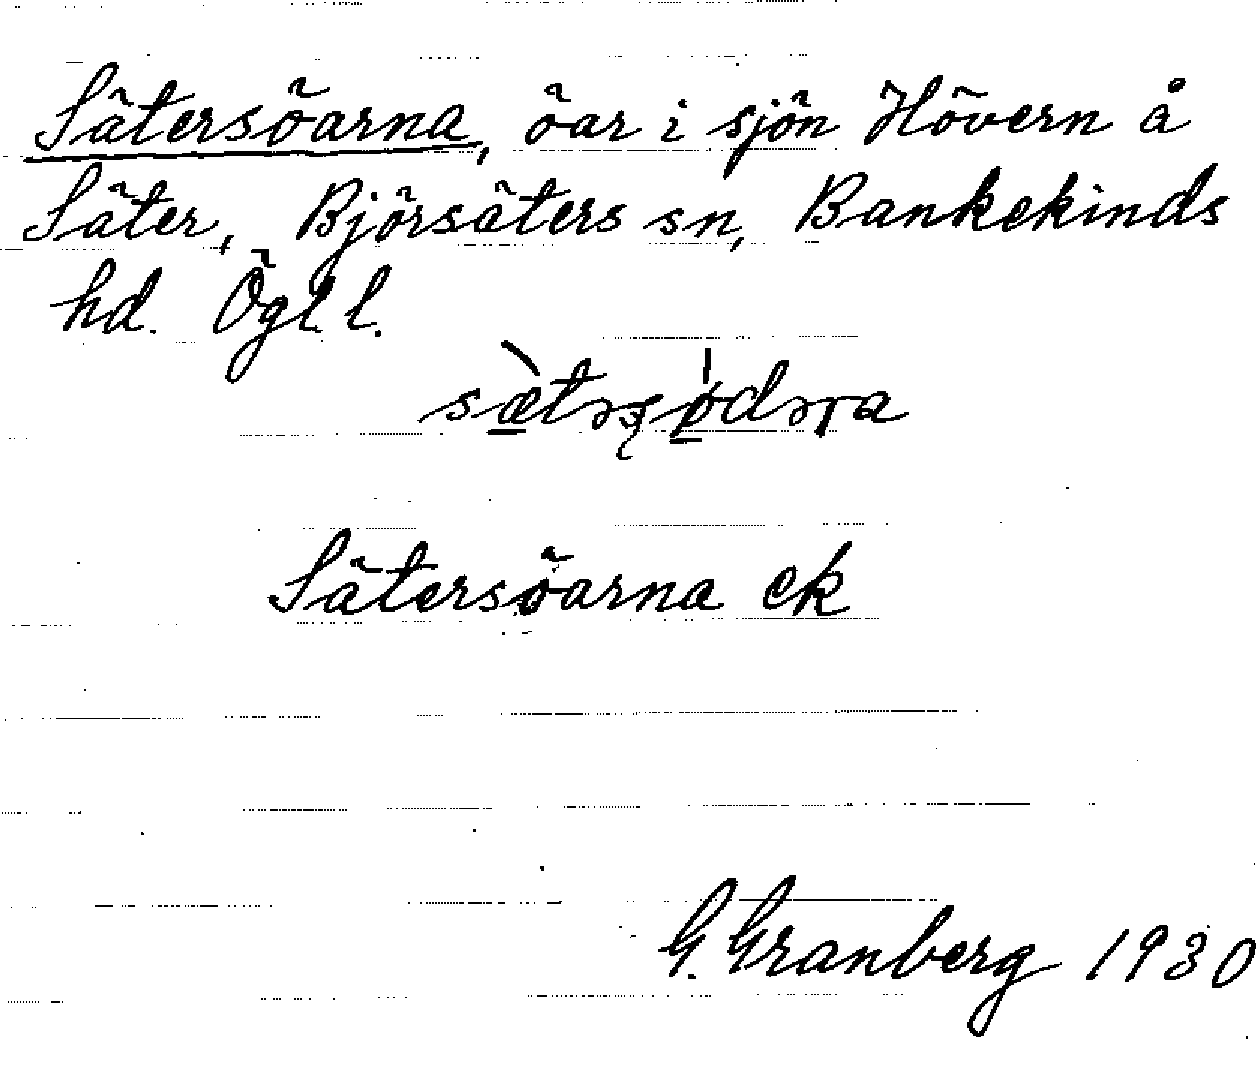 Sätersöarna, öar i sjön Hövern å
Säter, Björsäters sn, Bankekinds
hd. Ögl l.
Sätersöarna ek
G. Granberg 1930